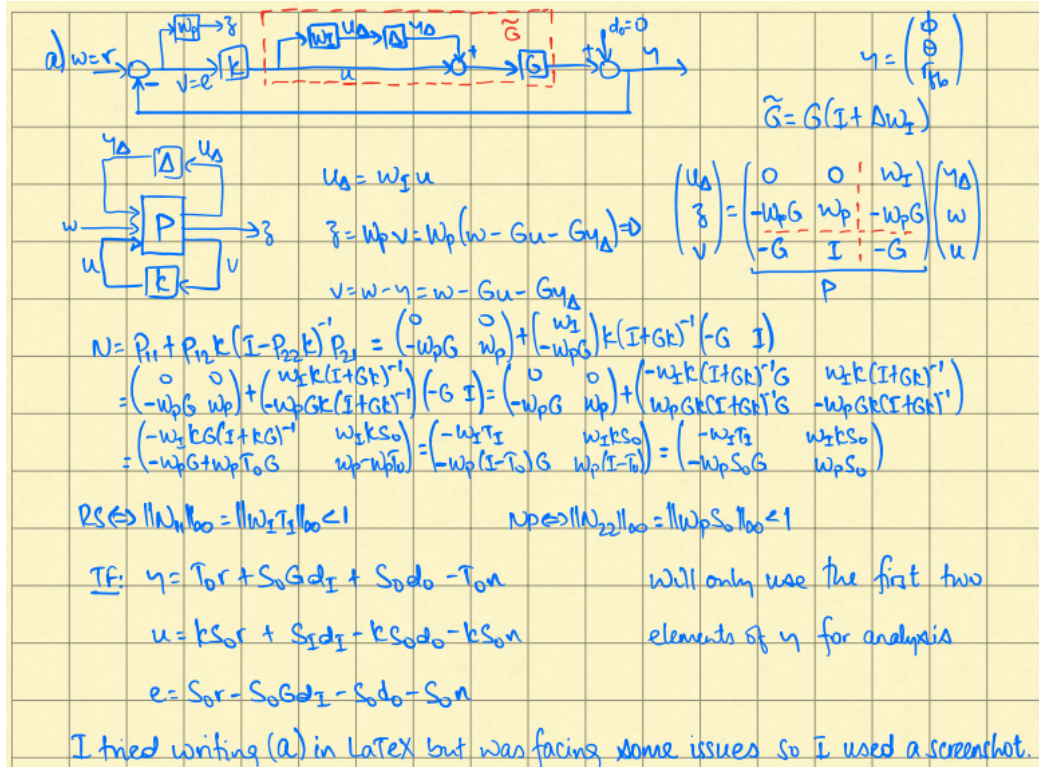 a) w=r + - v=e W_P → z K W_I u_Δ Δ y_Δ u + G G̃ + d_o=0 y
y = (ϕ θ r_fb)
G̃ = G(I + ΔW_I)
y_Δ Δ u_Δ
w P z
u K v
u_Δ = W_I u
z = W_P v = W_P(w - Gu - Gy_Δ) ⇒
v = w - y = w - Gu - Gy_Δ
(u_Δ z v) = (0 0 W_I; -W_PG W_P -W_PG; -G I -G) (y_Δ w u)
P
N = P_11 + P_12 K(I - P_22 K)^-1 P_21 = (0 0; -W_PG W_P) + (W_I; -W_PG) K(I+GK)^-1 (-G I)
= (0 0; -W_PG W_P) + (W_I K(I+GK)^-1; -W_PGK(I+GK)^-1) (-G I) = (0 0; -W_PG W_P) + (-W_I K(I+GK)^-1 G W_I K(I+GK)^-1; W_PGK(I+GK)^-1 G -W_PGK(I+GK)^-1)
= (-W_I KG(I+KG)^-1 W_I KS_o; -W_PG + W_P T_o G W_P - W_P T_o) = (-W_I T_I W_I KS_o; -W_P(I-T_o)G W_P(I-T_o)) = (-W_I T_I W_I KS_o; -W_P S_o G W_P S_o)
RS ⇔ ||N_11||_∞ = ||W_I T_I||_∞ < 1 NP ⇔ ||N_22||_∞ = ||W_P S_o||_∞ < 1
TF: y = T_o r + S_o G d_I + S_o d_o - T_o n will only use the first two
u = KS_o r + S_I d_I - KS_o d_o - KS_o n elements of y for analysis
e = S_o r - S_o G d_I - S_o d_o - S_o n
I tried writing (a) in LaTeX but was facing some issues so I used a screenshot.